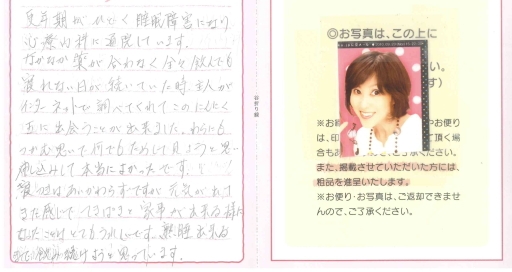 更年期がひどく睡眠障害になり
心療内科に通院しています。
なかなか薬が合わなく 飲んでも
寝れない日が続いていた時、主人が
インターネットで調べてくれてこのにんにく
玉に出会うことが出来ました。わらにも
つかむ思いで何でもためして見ようと思い
申し込みして本当によかったです。
はあいかわらずですが元気が出て
きた感じで てきぱきと家事が出来る様に
なったことはとてもうれしいです。 出来る
飲み続けようと思っています。
谷折り線
◎お写真は、この上に
い。
す)
※お やお便り
は、印 て頂く場
合も ください。
また、掲載させていただいた方には、
粗品を進呈いたします。
※お便り・お写真は、ご返却できませ
んので、ご了承ください。